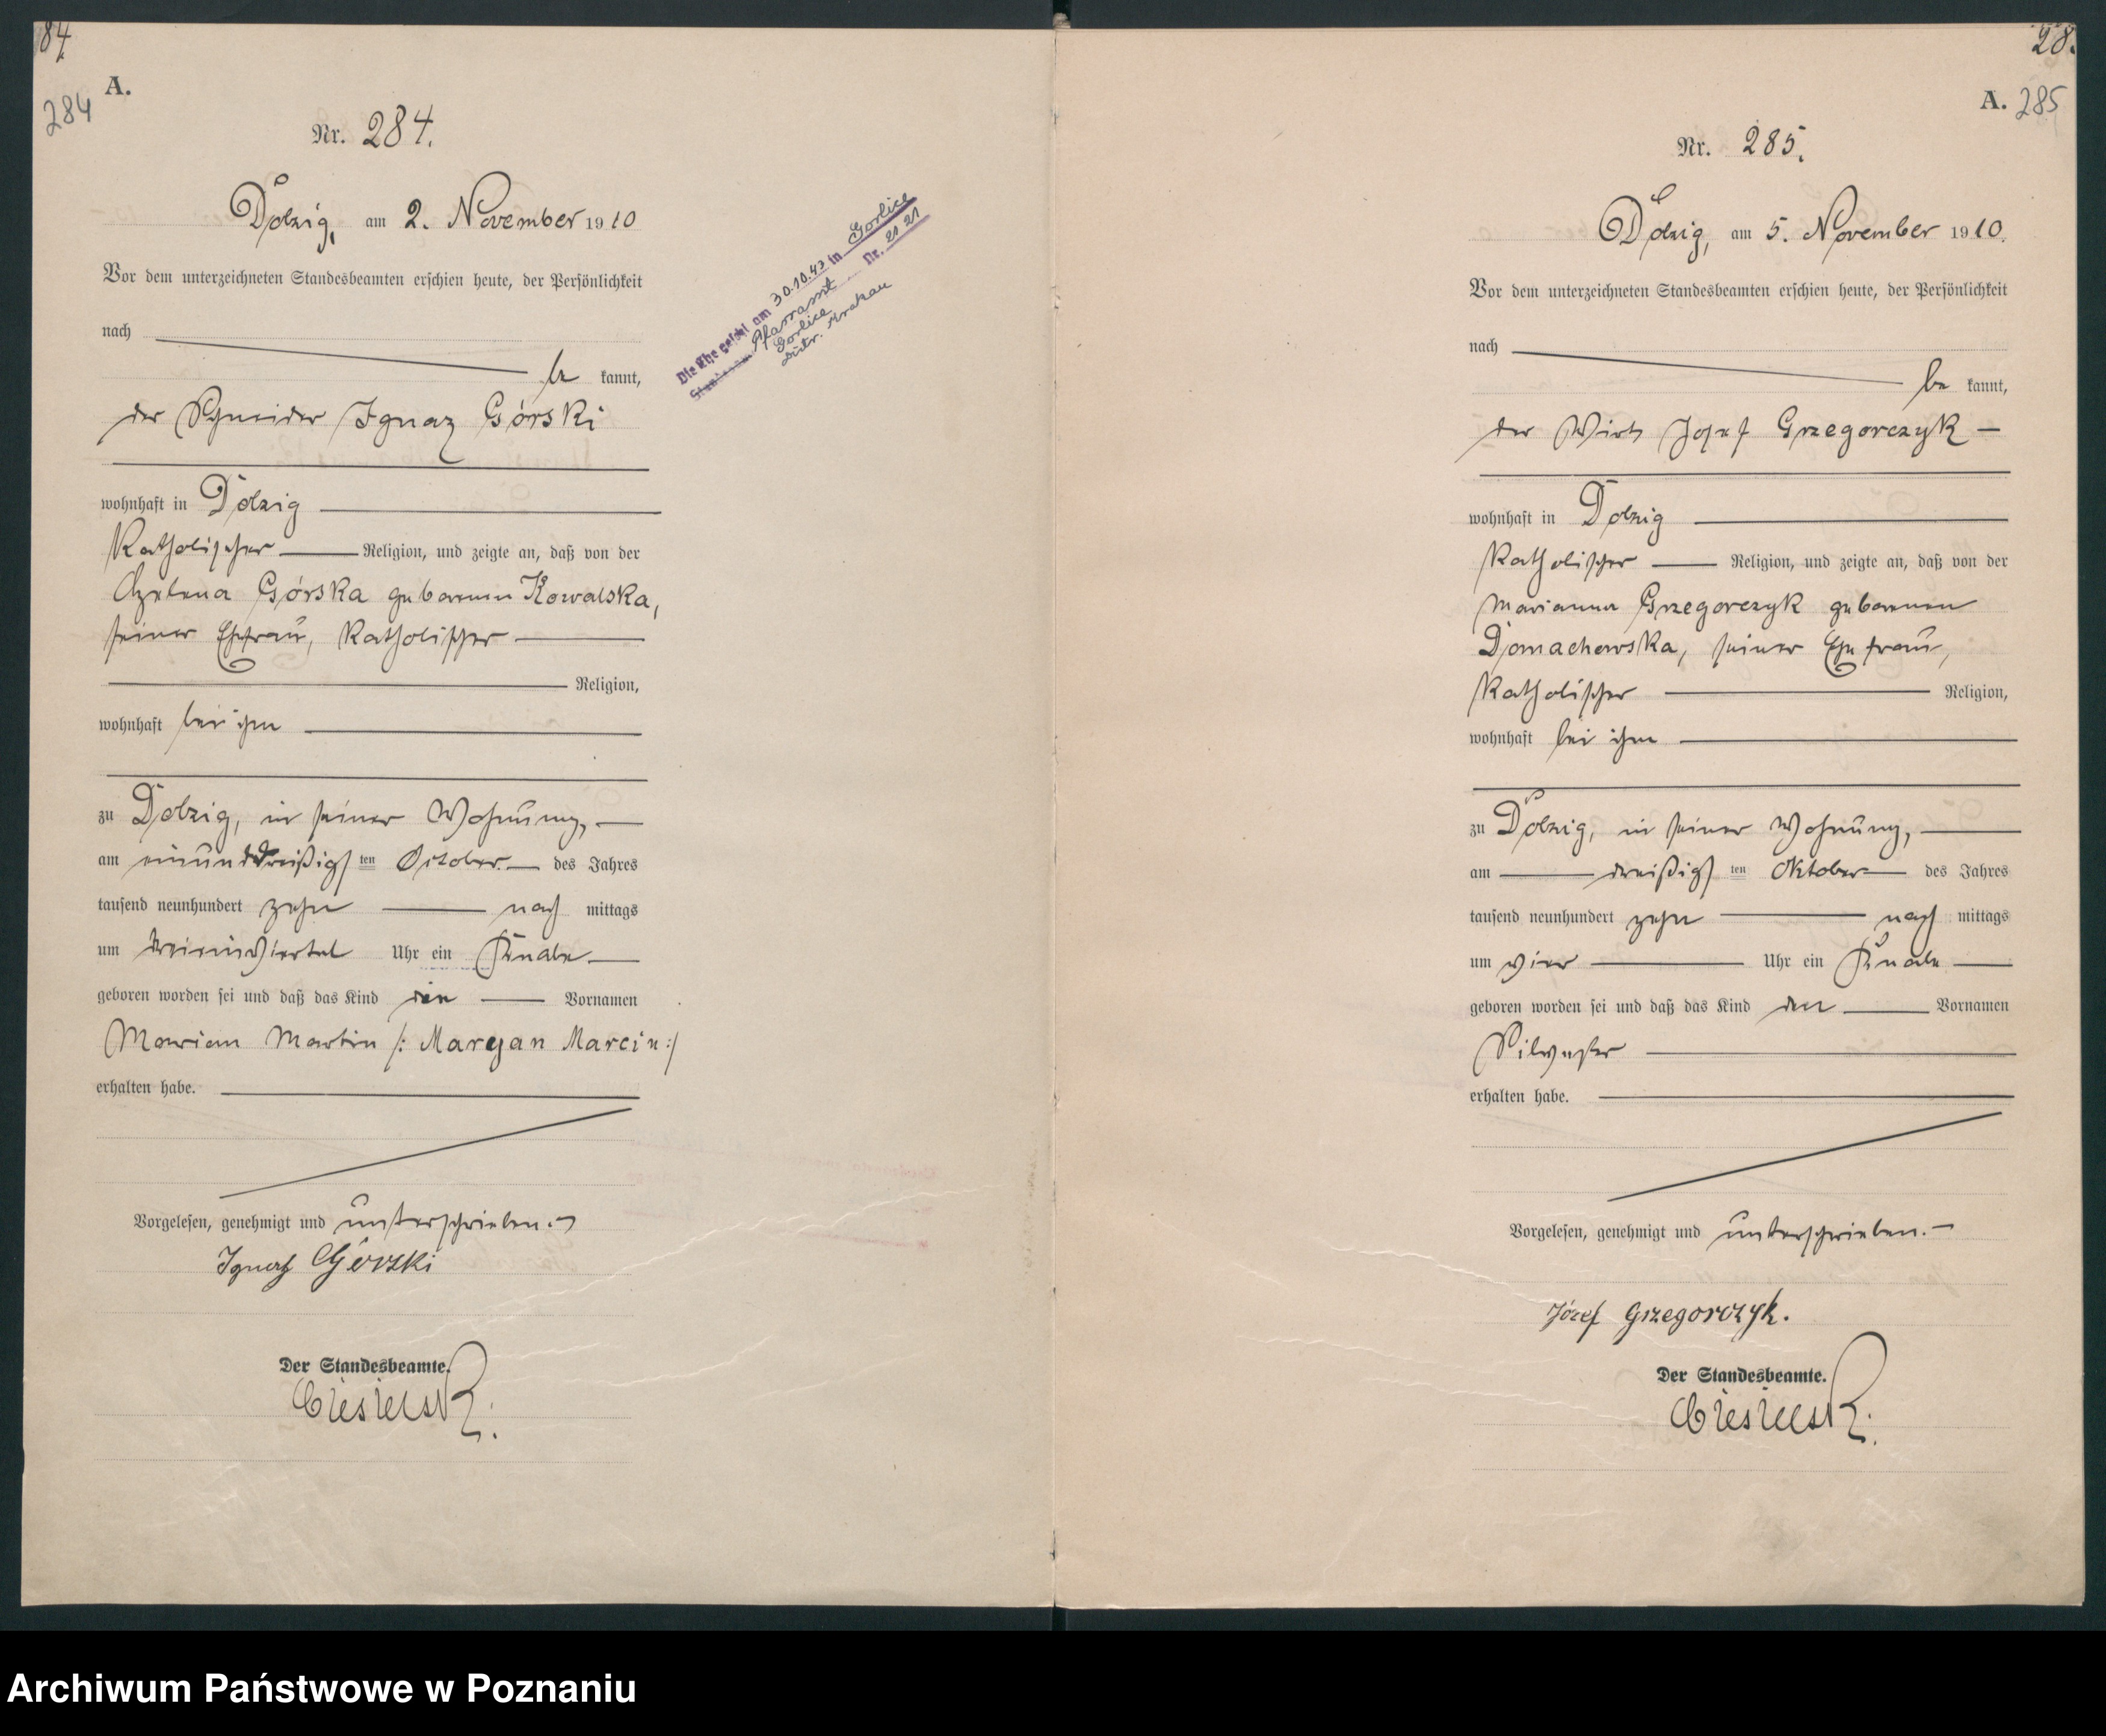 84
A.
284
Nr. 284.
Dolzig, am 2. November 1910
Vor dem unterzeichneten Standesbeamten erschien heute, der Persönlichkeit
nach
be kannt,
der Schneider Ignaz Górski
wohnhaft in Dolzig
Katholischer Religion, und zeigte an, daß von der
Górska geborenen Kowalska,
seiner Ehefrau, Katholischer
Religion,
wohnhaft bei ihm
zu Dolzig, in seiner Wohnung,
am einunddreißigsten October des Jahres
tausend neunhundert zehn nach mittags
um dreiundviertel Uhr ein Knabe
geboren worden sei und daß das Kind den Vornamen
Marian Martin /: Maryan Marcin :/
erhalten habe.
Vorgelesen, genehmigt und unterschrieben.
Ignatz Górski
Der Standesbeamte.
Ciesielski.
Die Ehe geschl am 30.10.43 in Gorlice
Pfarramt Nr. 21 21
Gorlice
Distr. Krakau
28.
A. 285
Nr. 285.
Dolzig, am 5. November 1910.
Vor dem unterzeichneten Standesbeamten erschien heute, der Persönlichkeit
nach
be kannt,
der Wirth Josef Grzegorczyk
wohnhaft in Dolzig
Katholischer Religion, und zeigte an, daß von der
Marianna Grzegorczyk geborenen
Domachowska, seiner Ehefrau,
Katholischer Religion,
wohnhaft bei ihm
zu Dolzig, in seiner Wohnung,
am dreißigsten Oktober des Jahres
tausend neunhundert zehn nach mittags
um vier Uhr ein Knabe
geboren worden sei und daß das Kind den Vornamen
Silvester
erhalten habe.
Vorgelesen, genehmigt und unterschrieben.
Józef Grzegorczyk.
Der Standesbeamte.
Ciesielski.
Archiwum Państwowe w Poznaniu